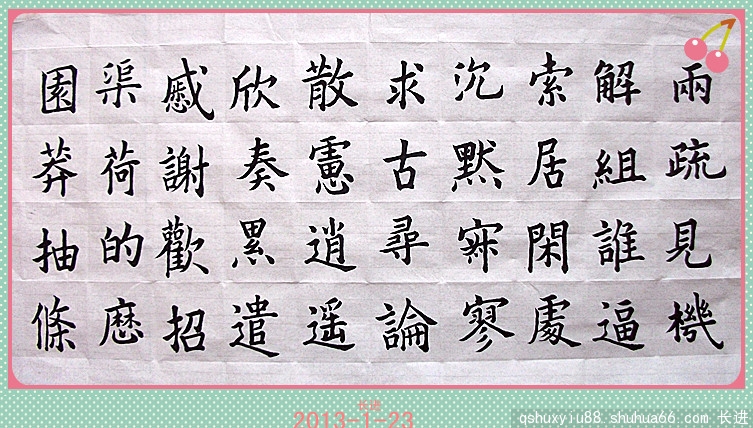 兩疏見機
解組誰逼
索居閑處
沉默寂寥
求古尋論
散慮逍遥
欣奏累遣
慼謝歡招
渠荷的歷
園莽抽條
长进
2013-1-23
qshuxyiu88.shuhua66.com 长进